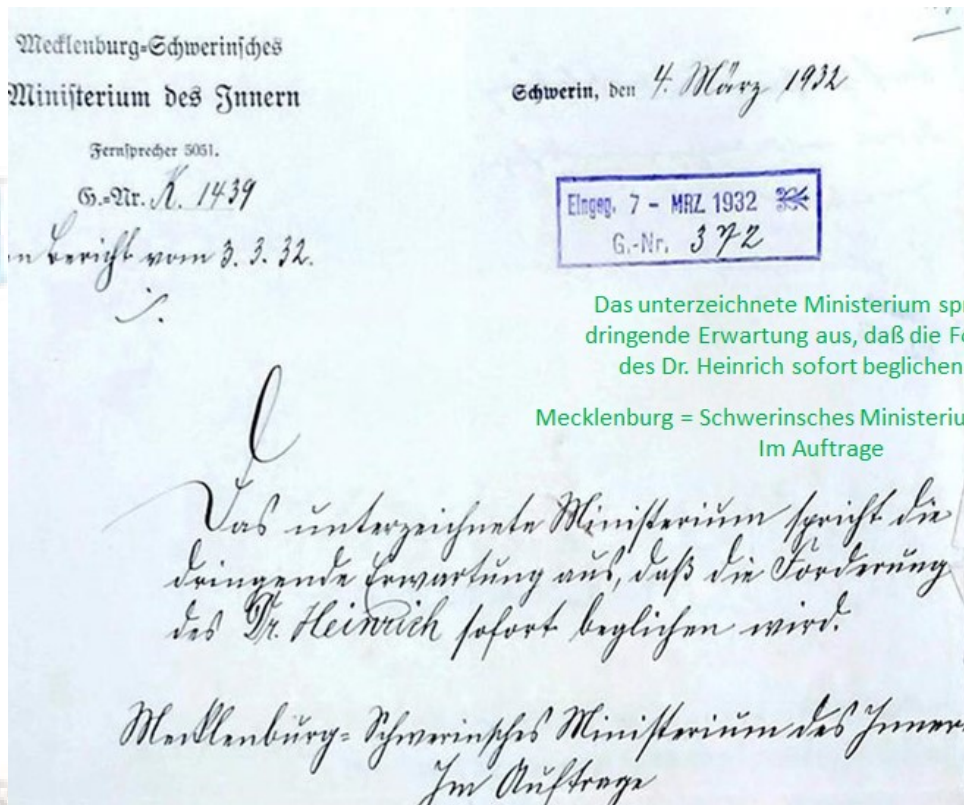 Mecklenburg=Schwerinsches
Ministerium des Innern
Fernsprecher 5051.
G.=Nr. K. 1439
Bericht vom 3. 3. 32.
Schwerin, den 4. März 1932
Eingeg. 7 - MRZ. 1932
G.-Nr. 372
Das unterzeichnete Ministerium spr
dringende Erwartung aus, daß die F
des Dr. Heinrich sofort beglichen
Mecklenburg = Schwerinsches Ministeriu
Im Auftrage
Das unterzeichnete Ministerium spricht die
dringende Erwartung aus, daß die Forderung
des Dr. Heinrich sofort beglichen wird.
Mecklenburg= Schwerinsches Ministerium des Inner
Im Auftrage